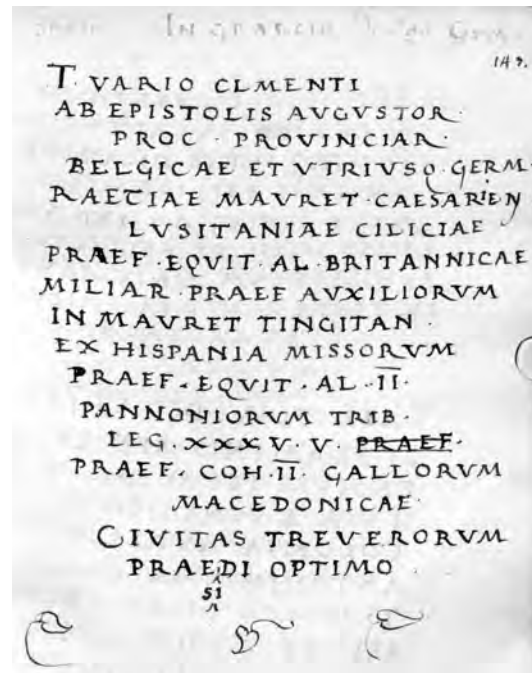 149.
T. VARIO CLMENTI
AB EPISTOLIS AVGVSTOR·
PROC · PROVINCIAR·
BELGICAE ET VTRIVSQ·GERM·
RAETIAE MAVRET·CAESARIEN
LVSITANIAE CILICIAE
PRAEF·EQVIT·AL·BRITANNICAE
MILIAR·PRAEF AVXILIORVM
IN MAVRET TINGITAN·
EX HISPANIA MISSORVM
PRAEF·EQVIT·AL·II·
PANNONIORVM TRIB·
LEG·XXX V·V· PRAEF·
PRAEF· COH·II· GALLORVM
MACEDONICAE·
CIVITAS TREVERORVM
PRAEDI OPTIMO
SI